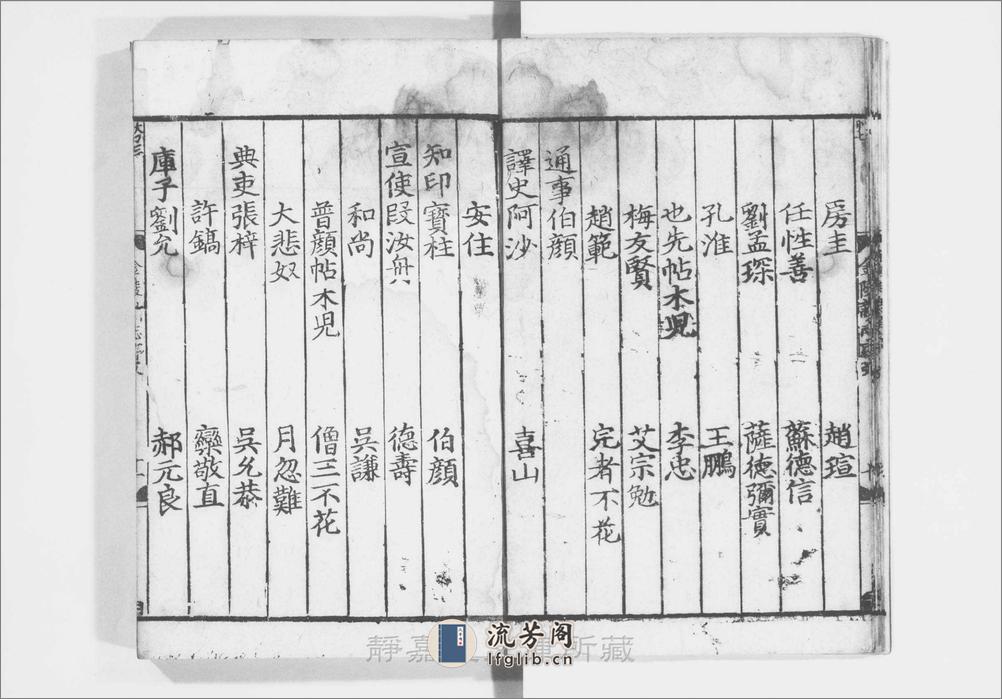 房圭 趙瑄
任性善 蘇德信
劉孟琛 薩德彌實
孔淮 王鵬
也先帖木児 李忠
梅友賢 艾宗勉
趙範 完者不花
通事伯顔
譯史阿沙 喜山
安住
知印寳柱 伯顔
宣使段汝舟 德壽
和尚 吳謙
普顔帖木児 僧三不花
大悲奴 月忽難
典吏張梓 吳允恭
許鎬 欒敬直
庫子劉允 郝元良
靜嘉 所藏
流芳阁
lfglib.cn